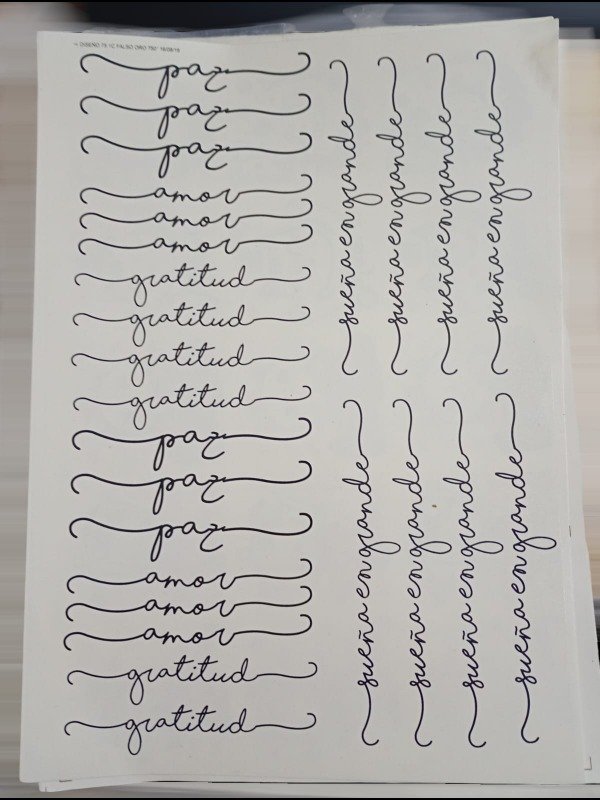 DISEÑO 75.1C FALSO ORO 750° 16/08/19
paz
paz
paz
amor
amor
amor
gratitud
gratitud
gratitud
gratitud
paz
paz
paz
amor
amor
amor
gratitud
gratitud
sueña en grande
sueña en grande
sueña en grande
sueña en grande
sueña en grande
sueña en grande
sueña en grande
sueña en grande